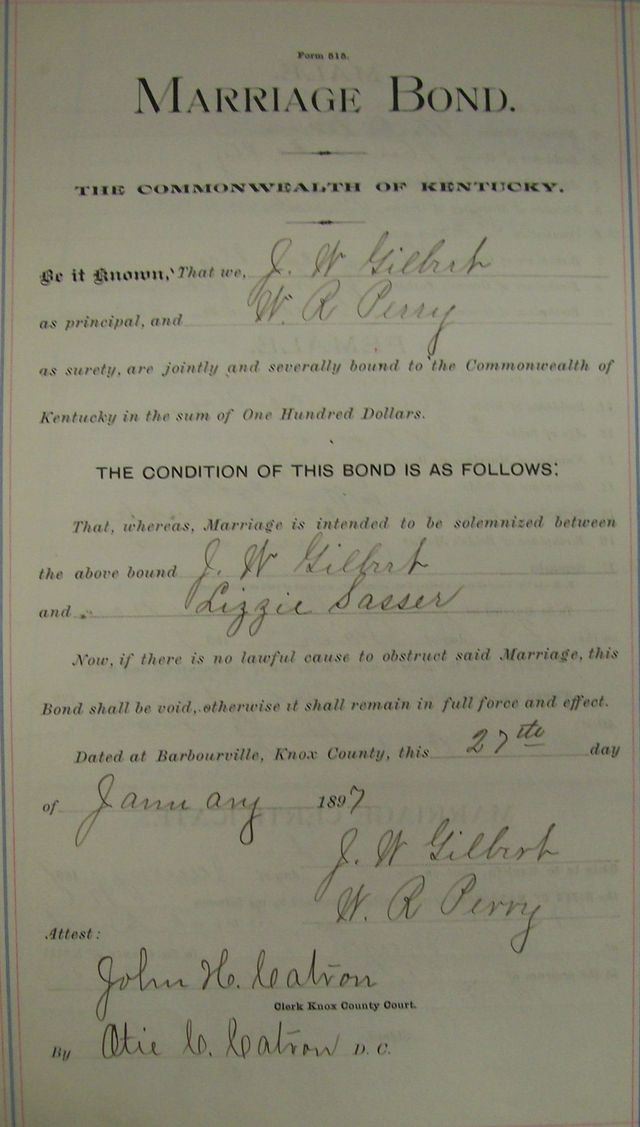 Form 515.
MARRIAGE BOND.
THE COMMONWEALTH OF KENTUCKY.
Be it Known, That we, J. W Gilbert
as principal, and W. R Perry
as surety, are jointly and severally bound to the Commonwealth of
Kentucky in the sum of One Hundred Dollars.
THE CONDITION OF THIS BOND IS AS FOLLOWS:
That, whereas, Marriage is intended to be solemnized between
the above bound J. W Gilbert
and Lizzie Sasser
Now, if there is no lawful cause to obstruct said Marriage, this
Bond shall be void, otherwise it shall remain in full force and effect.
Dated at Barbourville, Knox County, this 27th day
of January 1897
J. W Gilbert
W. R Perry
Attest:
John H. Catron
Clerk Knox County Court.
By Otie C. Catron D. C.